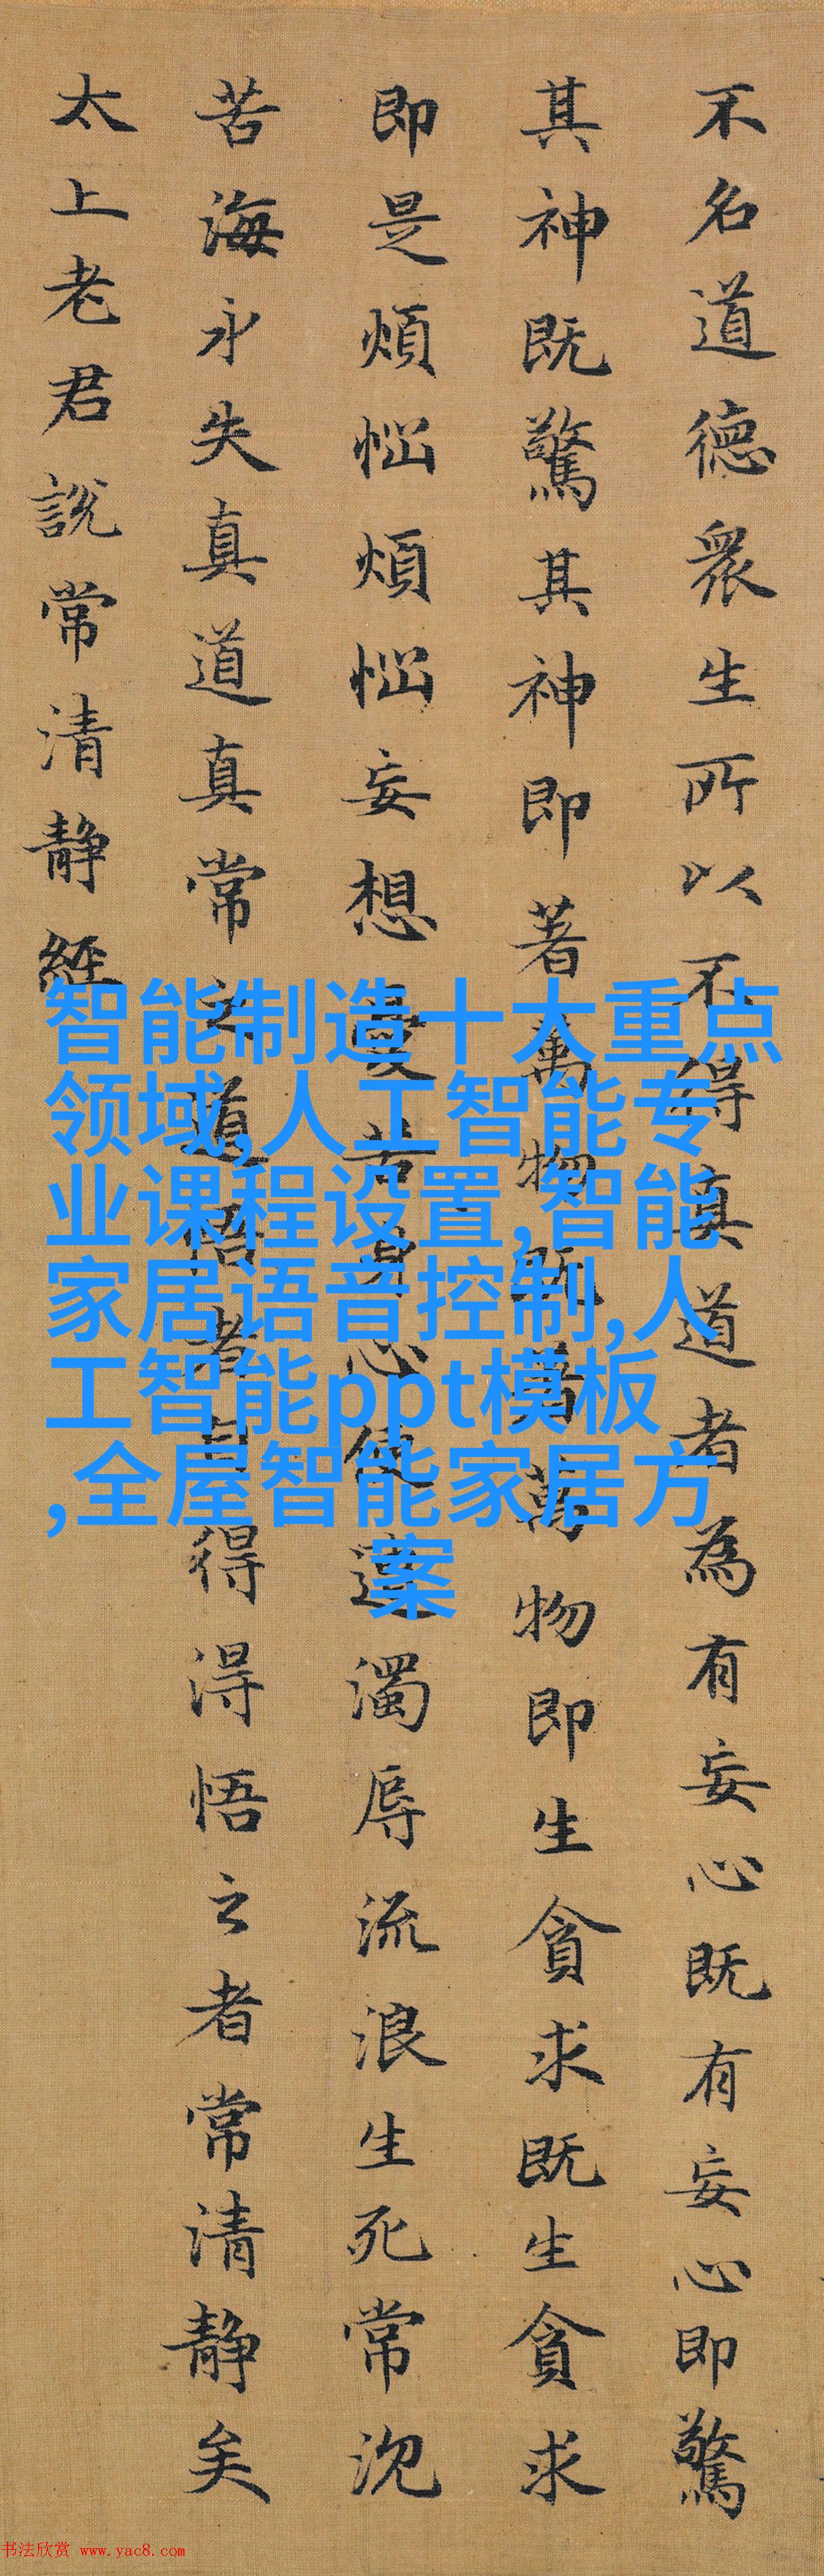 不名道德眾生所以不得真道者為有妄心既有妄心即驚
其神既驚其神即著萬物既著萬物即生貪求既生貪求
即是煩惱煩惱妄想憂苦身心便遭濁辱流浪生死常沉
苦海永失真道真常之道悟者自得得悟之者常清靜矣
太上老君說常清靜經
智能制造十大重点
领域,人工智能专
业课程设置,智能
家居语音控制,人
工智能ppt模板
,全屋智能家居方
案
书法欣赏 www.yac8.com